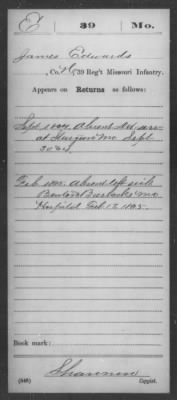 E 39 Mo.
James Edwards
, Co. H, 39 Reg't Missouri Infantry.
Appears on Returns as follows:
Sept 1864, Absent
at Mo. Sept
30 64
Feb 1865. Absent left sick
Benton Barracks Mo
Hospital Feb. 12 1865.
Book mark:
Shannon
(546) Copyist.